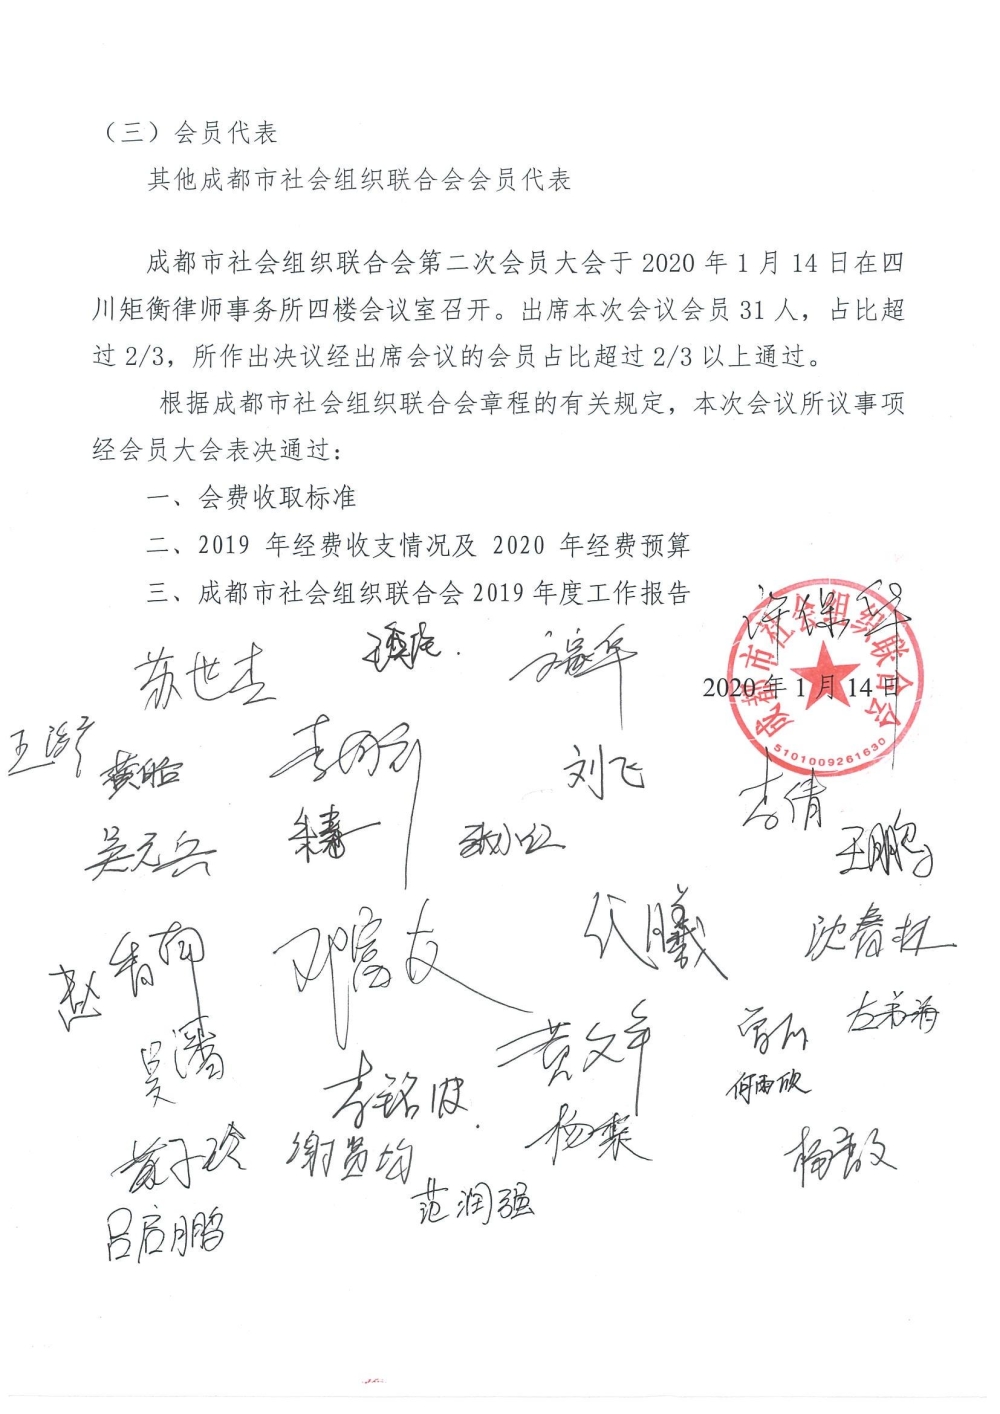 （三）会员代表
其他成都市社会组织联合会会员代表
成都市社会组织联合会第二次会员大会于 2020 年 1 月 14 日在四
川矩衡律师事务所四楼会议室召开。出席本次会议会员 31 人，占比超
过 2/3，所作出决议经出席会议的会员占比超过 2/3 以上通过。
根据成都市社会组织联合会章程的有关规定，本次会议所议事项
经会员大会表决通过：
一、会费收取标准
二、2019 年经费收支情况及 2020 年经费预算
三、成都市社会组织联合会 2019 年度工作报告
苏世杰
2020 年 1 月 14 日
成都市社会组织联合会
5101009261630
刘飞
李倩
吴元兵
王鹏
邓富友
代曦
沈春林
何雨欣
李铭波
谢贤均
范润强
吕启鹏